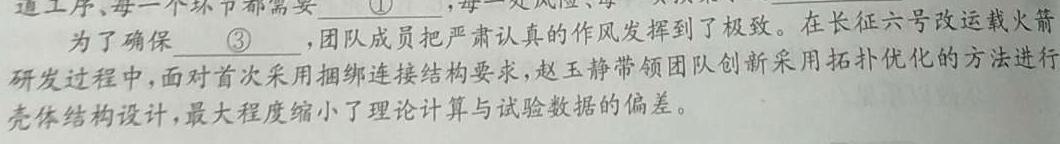 道工序、每一个环节都需要 ① ,每一处风险、每一
为了确保 ③ ,团队成员把严肃认真的作风发挥到了极致。在长征六号改运载火箭
研发过程中,面对首次采用捆绑连接结构要求,赵玉静带领团队创新采用拓扑优化的方法进行
壳体结构设计,最大程度缩小了理论计算与试验数据的偏差。